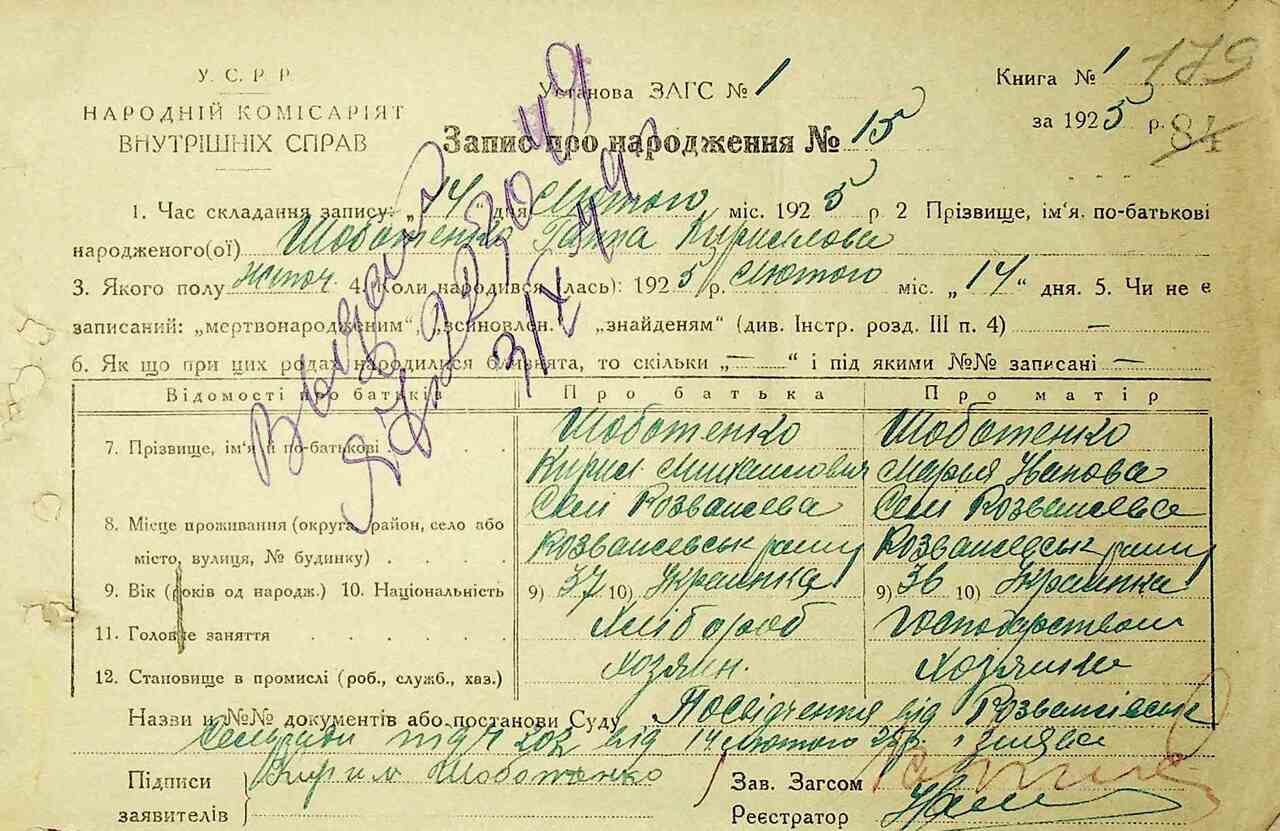 У. С. Р. Р.
НАРОДНІЙ КОМІСАРІЯТ
ВНУТРІШНІХ СПРАВ
Установа ЗАГС № 1
Книга № 1
179
за 1925 р.
84
Запис про народження № 15
1. Час складання запису: „14“ дня Лютого міс. 1925 р 2 Прізвище, ім'я, по-батькові
народженого(ої) Шоботенко Ганна Кирилова
3. Якого полу жіноч 4. Коли народився (лась): 1925 р. Лютого міс. „14“ дня. 5. Чи не є
записаний: „мертвонародженим“, „всиновлен.“ „знайденям“ (див. Інстр. розд. III п. 4) —
6. Як що при цих родах народилися близнята, то скільки „—“ і під якими №№ записані —
Відомості про батьків Про батька Про матір
7. Прізвище, ім'я й по-батькові Шоботенко Шоботенко
Кирил Михаилович Мария Иванова
8. Місце проживання (округа, район, село або Селі Розваж Селі Розваж
місто, вулиця, № будинку)
9. Вік (років од народж.) 10. Національність 9) 37 10) Украинка 9) 36 10) Украинка
11. Головне заняття Хлібороб Господарством
12. Становище в промислі (роб., служб., хаз.) Хозяин. Хозяйка
Назви и №№ документів або постанови Суду Посвідчення від
від 14 лютого 25 р.
Підписи Кирил Шоботенко
заявителів
Зав. Загсом
Реєстратор